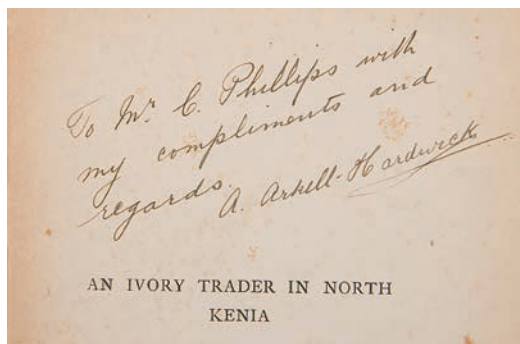 To Mr. C. Phillips with
my compliments and
regards.
A. Arkell-Hardwick
AN IVORY TRADER IN NORTH
KENIA